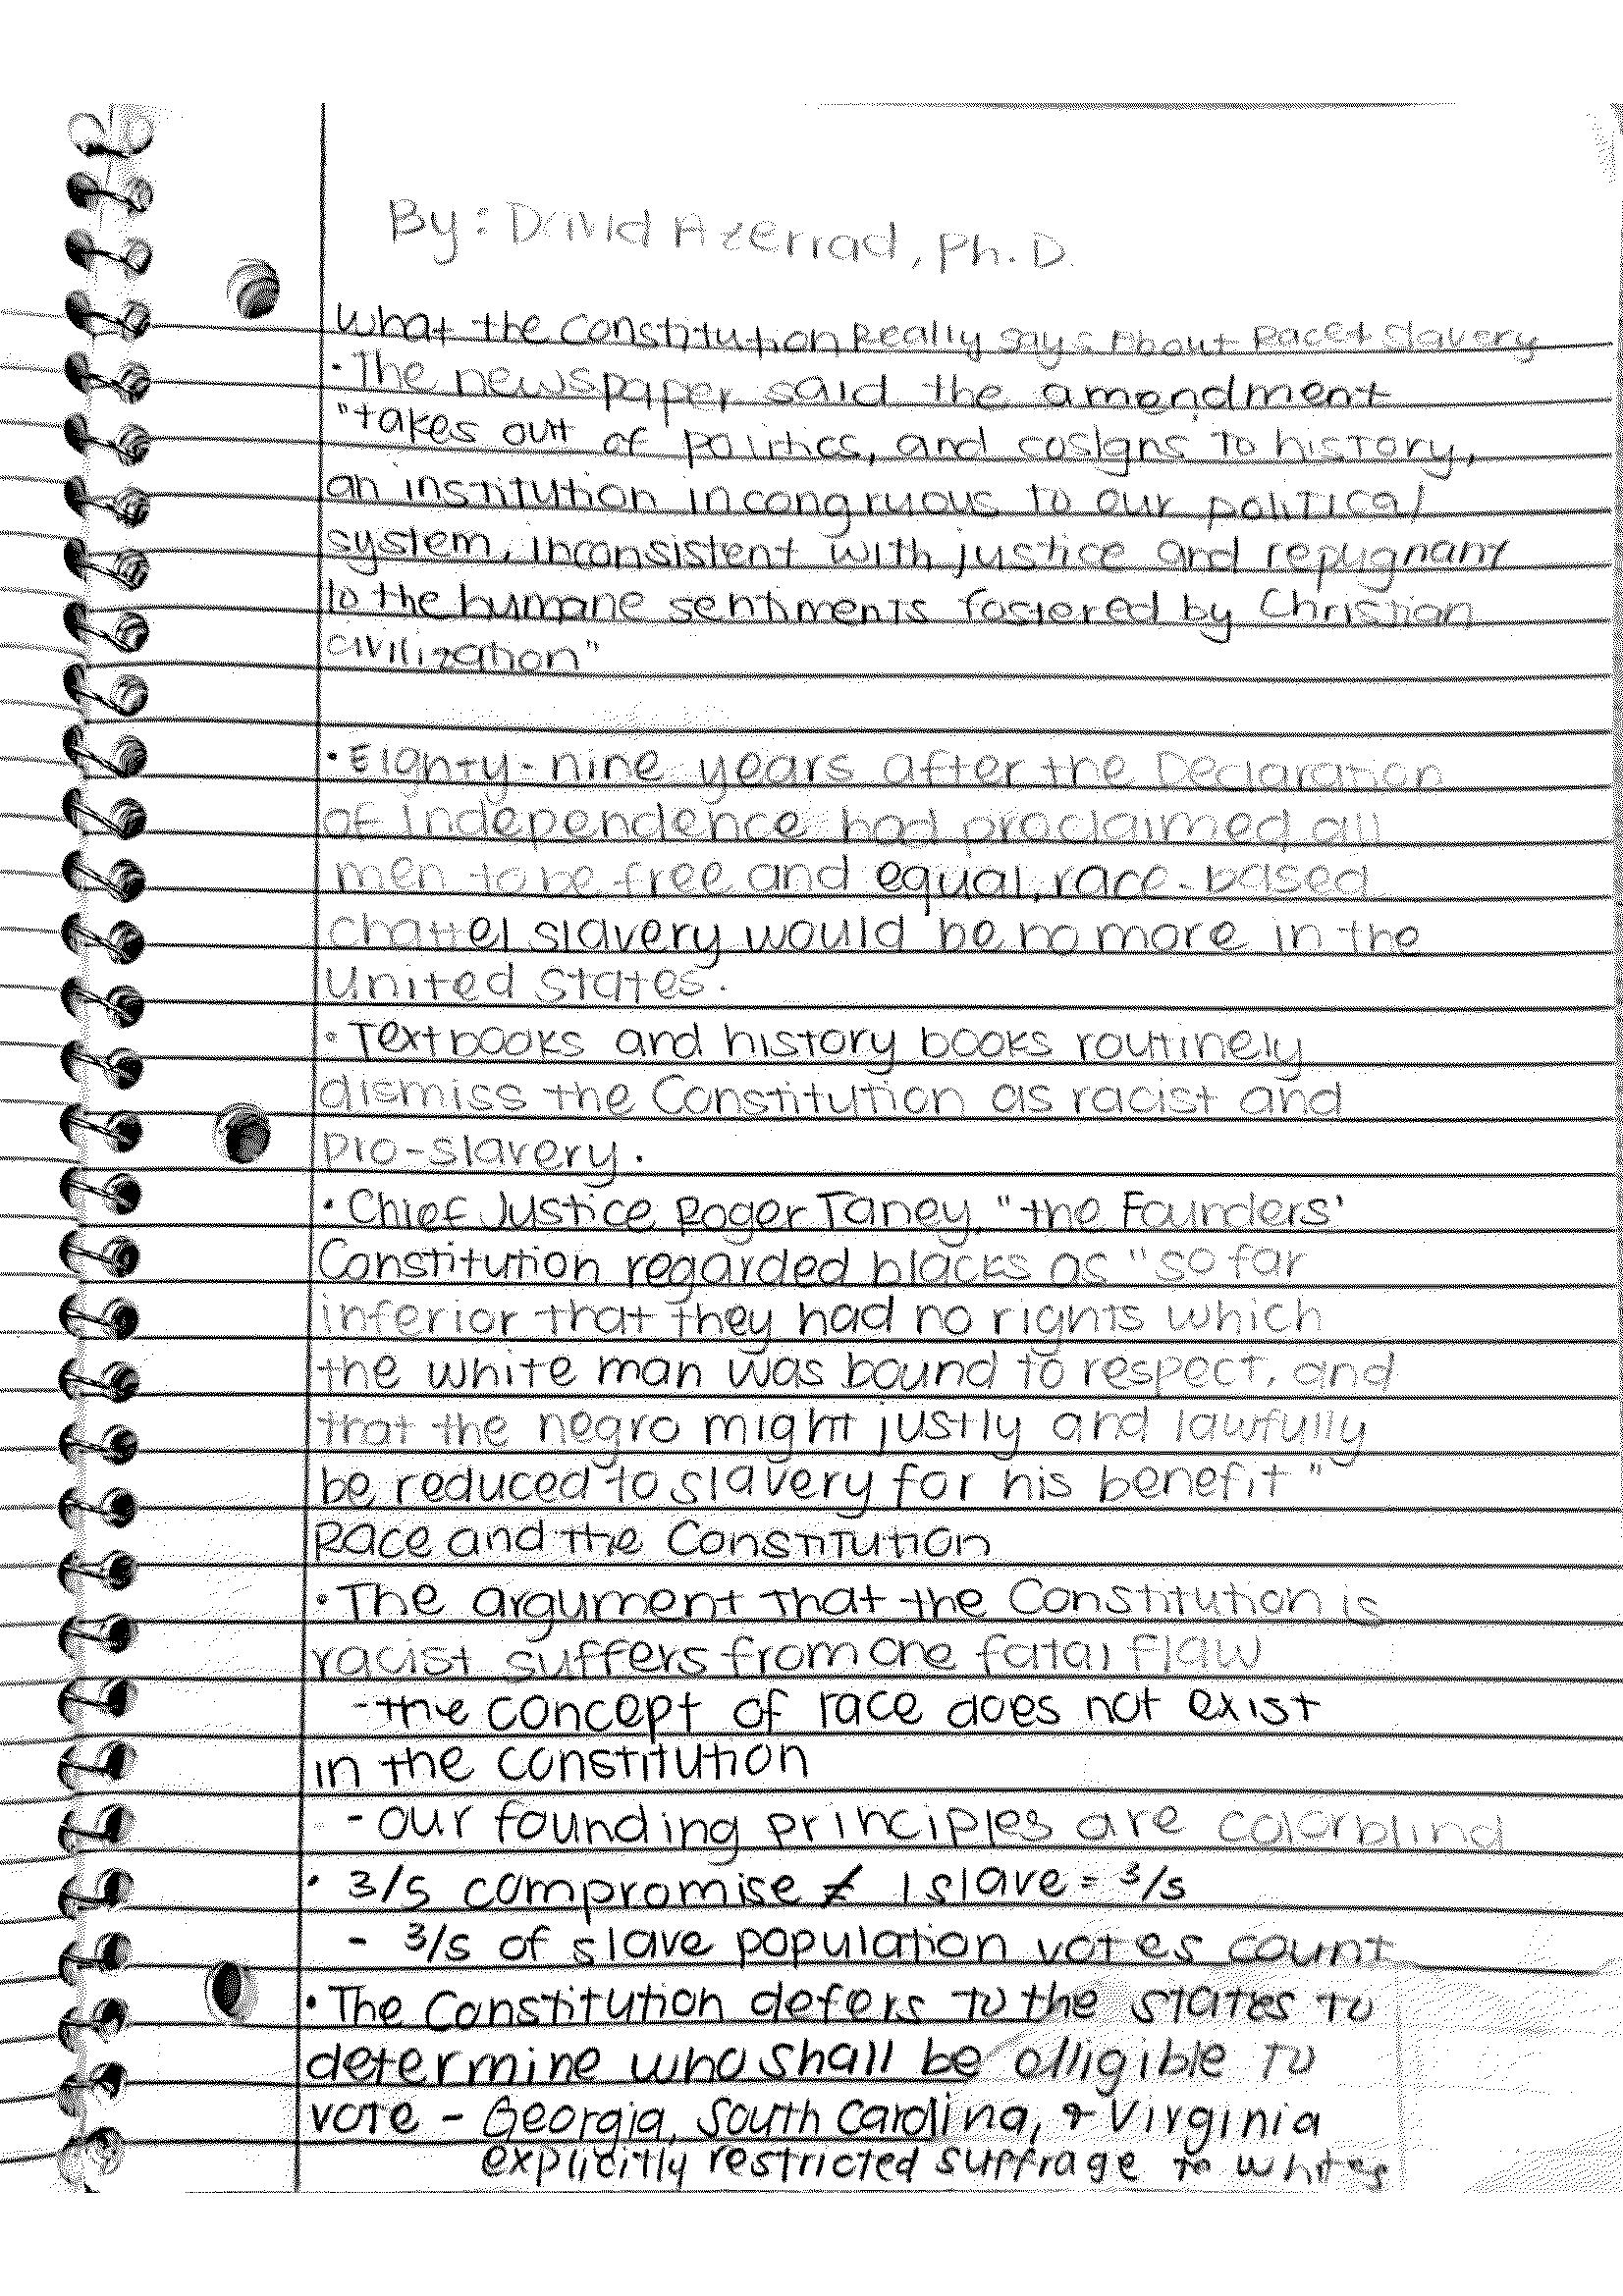 By: David Azerrad, Ph.D.
What the Constitution Really Says About Race & Slavery
· The newspaper said the amendment
"takes out of politics, and cosigns to history,
an institution incongruous to our political
system, inconsistent with justice and repugnant
to the humane sentiments fostered by Christian
civilization"
· Eighty-nine years after the Declaration
of Independence had proclaimed all
men to be free and equal, race-based
chattel slavery would be no more in the
United States.
· Textbooks and history books routinely
dismiss the Constitution as racist and
pro-slavery.
· Chief Justice Roger Taney, "the Founders'
Constitution regarded blacks as "so far
inferior that they had no rights which
the white man was bound to respect, and
that the negro might justly and lawfully
be reduced to slavery for his benefit"
Race and the Constitution
· The argument that the Constitution is
racist suffers from one fatal flaw
- the concept of race does not exist
in the constitution
- our founding principles are colorblind
· 3/5 compromise ≠ 1 slave = 3/5
- 3/5 of slave population votes count
· The Constitution defers to the states to
determine who shall be olligible to
vote - Georgia, South Carolina, & Virginia
explicitly restricted suffrage to whites